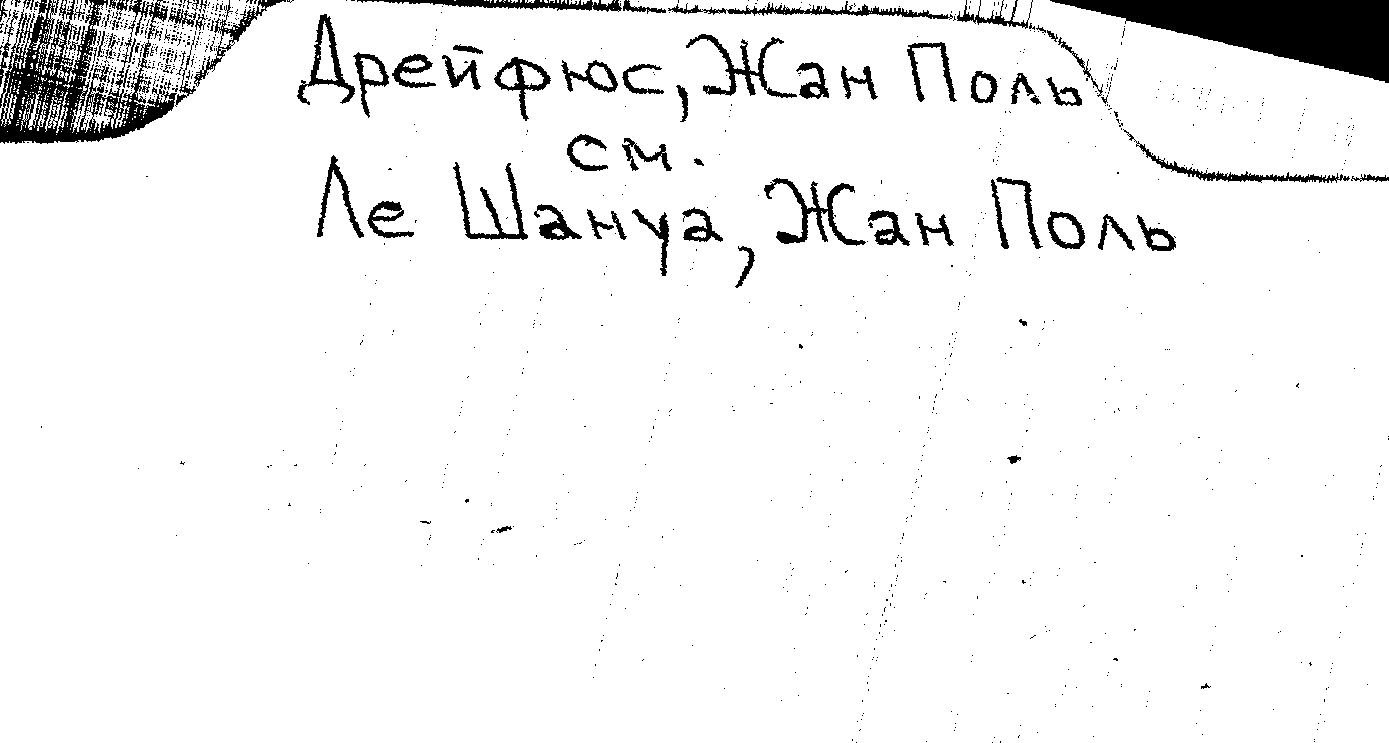 Дрейфюс, Жан Поль
см.
Ле Шануа, Жан Поль